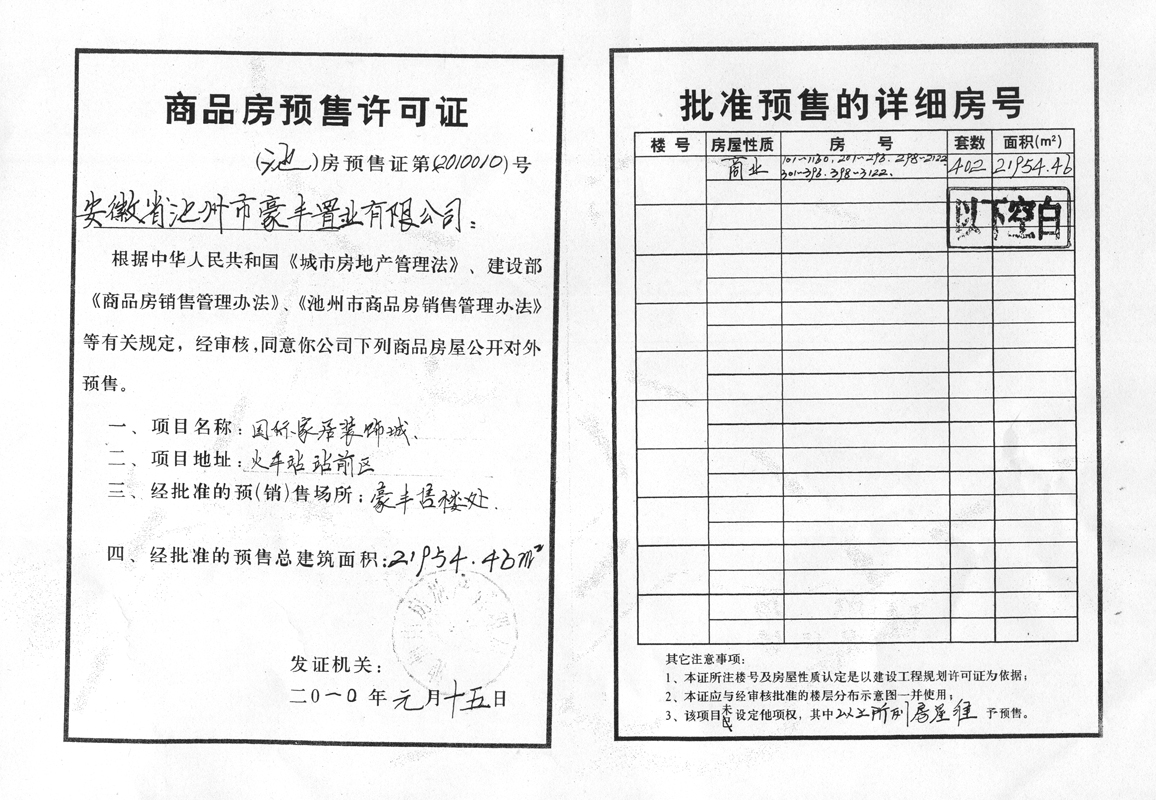 商品房预售许可证
(池)房预售证第(2010010)号
安徽省池州市豪丰置业有限公司:
根据中华人民共和国《城市房地产管理法》、建设部
《商品房销售管理办法》、《池州市商品房销售管理办法》
等有关规定,经审核,同意你公司下列商品房屋公开对外
预售。
一、项目名称:国际家居装饰城.
二、项目地址:火车站站前区
三、经批准的预(销)售场所:豪丰售楼处.
四、经批准的预售总建筑面积:21954.46m²
发证机关:
二0一0年元月十五日
批准预售的详细房号
楼号 房屋性质 房号 套数 面积(m²)
商业 101-1130.201-296.298-2122. 402 21954.46
301-396.398-3122.
以下空白
其它注意事项:
1、本证所注楼号及房屋性质认定是以建设工程规划许可证为依据;
2、本证应与经审核批准的楼层分布示意图一并使用;
3、该项目未设定他项权,其中以上所列房屋准予预售。